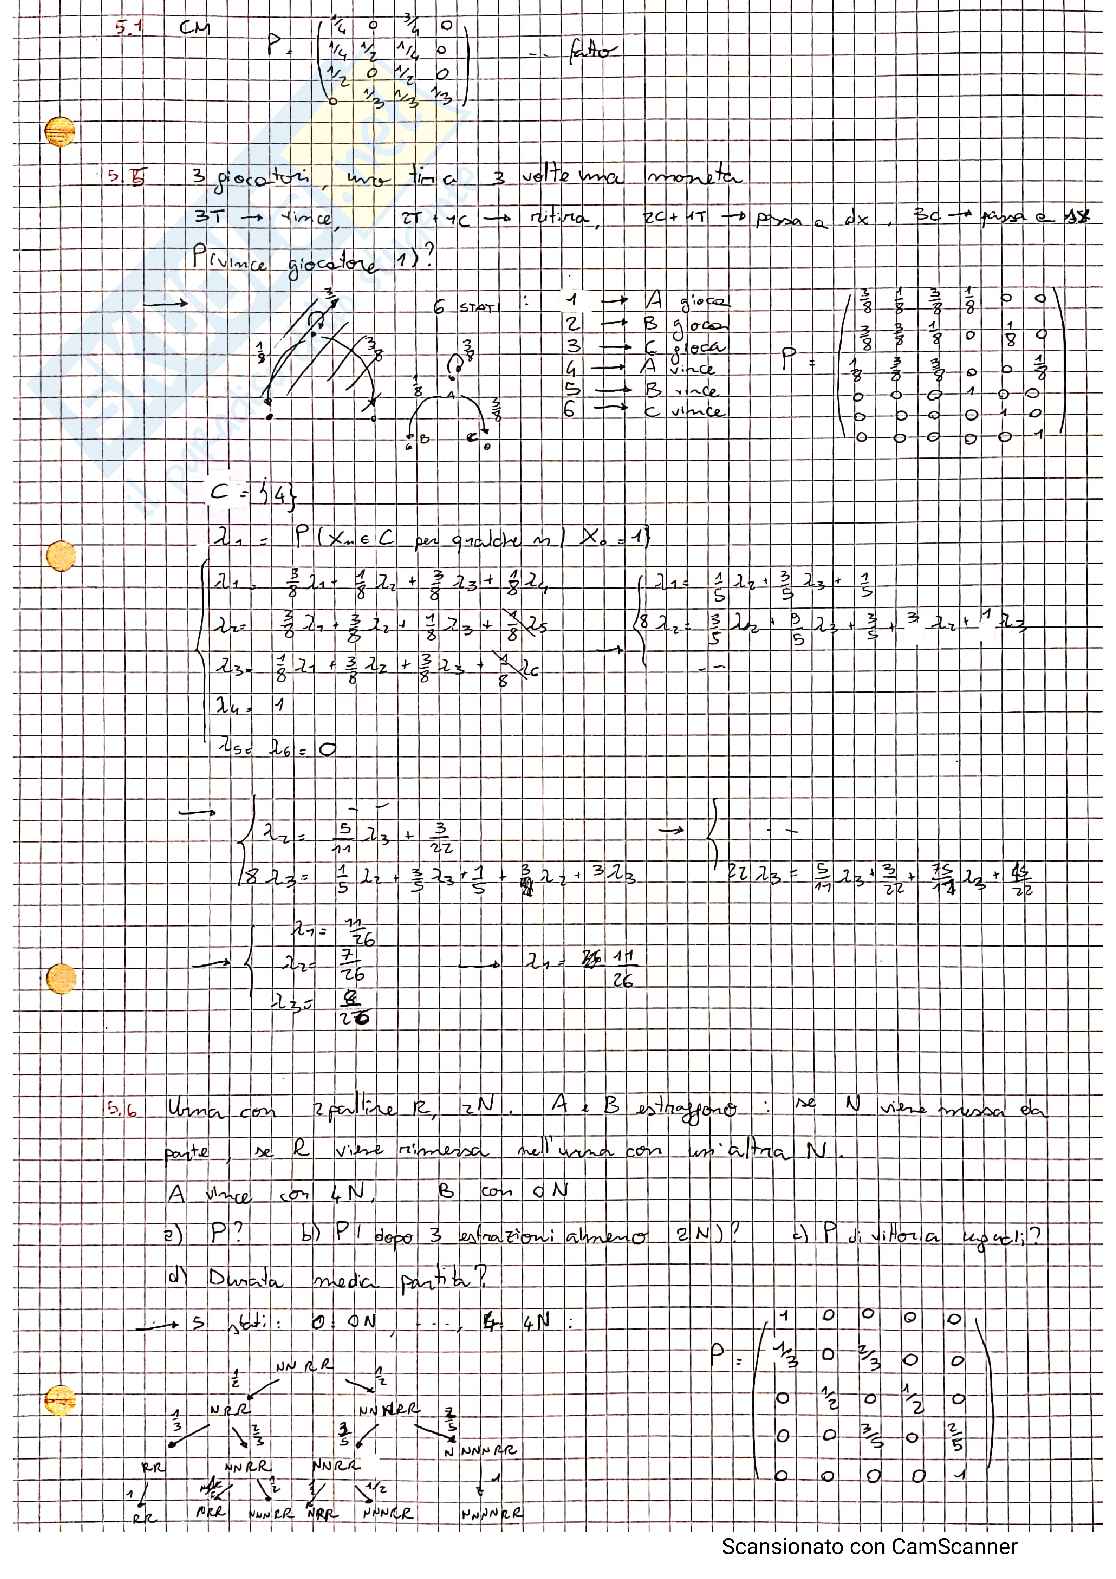 5.1 CM P = (1/4 0 3/4 0
1/4 1/2 1/4 0
1/2 0 1/2 0
0 1/3 1/3 1/3) ... fatto
5.5 3 giocatori, uno tira 3 volte una moneta
3T → vince, 2T + 1C → ritira, 2C + 1T → passa a dx, 3C → passa a sx
P(vince giocatore 1)?
6 STATI : 1 → A gioca
2 → B gioca
3 → C gioca
4 → A vince
5 → B vince
6 → C vince
P = (3/8 1/8 3/8 1/8 0 0
3/8 3/8 1/8 0 1/8 0
1/8 3/8 3/8 0 0 1/8
0 0 0 1 0 0
0 0 0 0 1 0
0 0 0 0 0 1)
3/8 1/8 3/8
3/8 1/8 A 3/8 B C
C = {4}
λ1 = P(Xn ∈ C per qualche n | X0 = 1)
λ1 = 3/8 λ1 + 1/8 λ2 + 3/8 λ3 + 1/8 λ4
λ2 = 3/8 λ1 + 3/8 λ2 + 1/8 λ3 + 1/8 λ5
λ3 = 1/8 λ1 + 3/8 λ2 + 3/8 λ3 + 1/8 λ6
λ4 = 1
λ5 = λ6 = 0
→ λ1 = 1/5 λ2 + 3/5 λ3 + 1/5
8 λ2 = 3/5 λ2 + 9/5 λ3 + 3/5 + 3 λ2 + 1 λ3
- -
→ - -
λ2 = 5/11 λ3 + 3/22
8 λ3 = 1/5 λ2 + 3/5 λ3 + 1/5 + 3 λ2 + 3 λ3
→ - -
22 λ3 = 5/11 λ3 + 3/22 + 75/11 λ3 + 45/22
→ λ1 = 11/26
λ2 = 7/26
λ3 = 8/26
→ λ1 = 11/26
5.6 Urna con 2 palline R, 2N. A e B estraggono : se N viene messa da
parte, se R viene rimessa nell'urna con un'altra N.
A vince con 4N, B con 0N
a) P? b) P(dopo 3 estrazioni almeno 2N)? c) P di vittoria uguali?
d) Durata media partita?
→ 5 stati: 0: 0N, ..., 4: 4N :
P = (1 0 0 0 0
1/3 0 2/3 0 0
0 1/2 0 1/2 0
0 0 3/5 0 2/5
0 0 0 0 1)
NNRR
1/2 1/2
NRR NNNRR
1/3 2/3 3/5 2/5
RR NNRR NNRR NNNNRR
1 1/2 1/2 1/2 1
RR NRR NNNRR NRR NNNRR NNNNRR
Scansionato con CamScanner